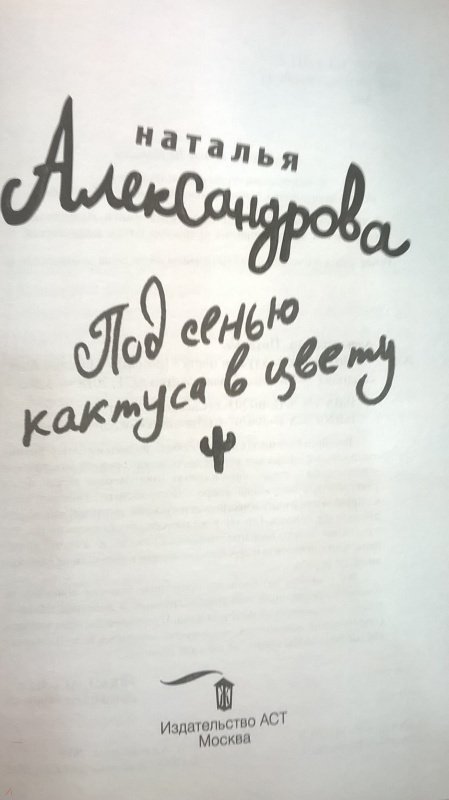 наталья
Александрова
Под сенью
кактуса в цвету
Издательство АСТ
Москва